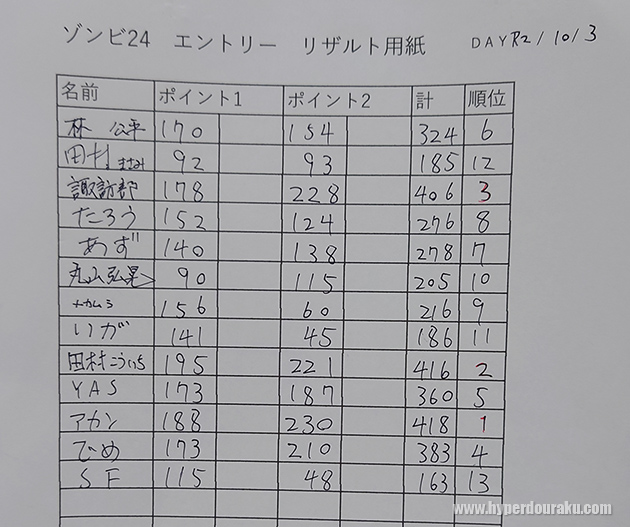 ゾンビ24 エントリー リザルト用紙 DAY R2/10/3
名前 ポイント1 ポイント2 計 順位
林 公平 170 154 324 6
田村 まなみ 92 93 185 12
諏訪部 178 228 406 3
たろう 152 124 276 8
あず 140 138 278 7
丸山弘晃 90 115 205 10
ナカムラ 156 60 216 9
いが 141 45 186 11
田村こういち 195 221 416 2
YAS 173 187 360 5
アカン 188 230 418 1
でめ 173 210 383 4
SF 115 48 163 13
www.hyperdouraku.com